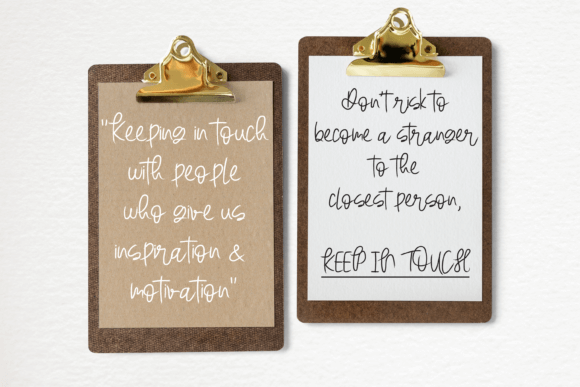 "Keeping in touch
with people
who give us
inspiration &
motivation"
Don't risk to
become a stranger
to the
closest person,
KEEP IN TOUCH